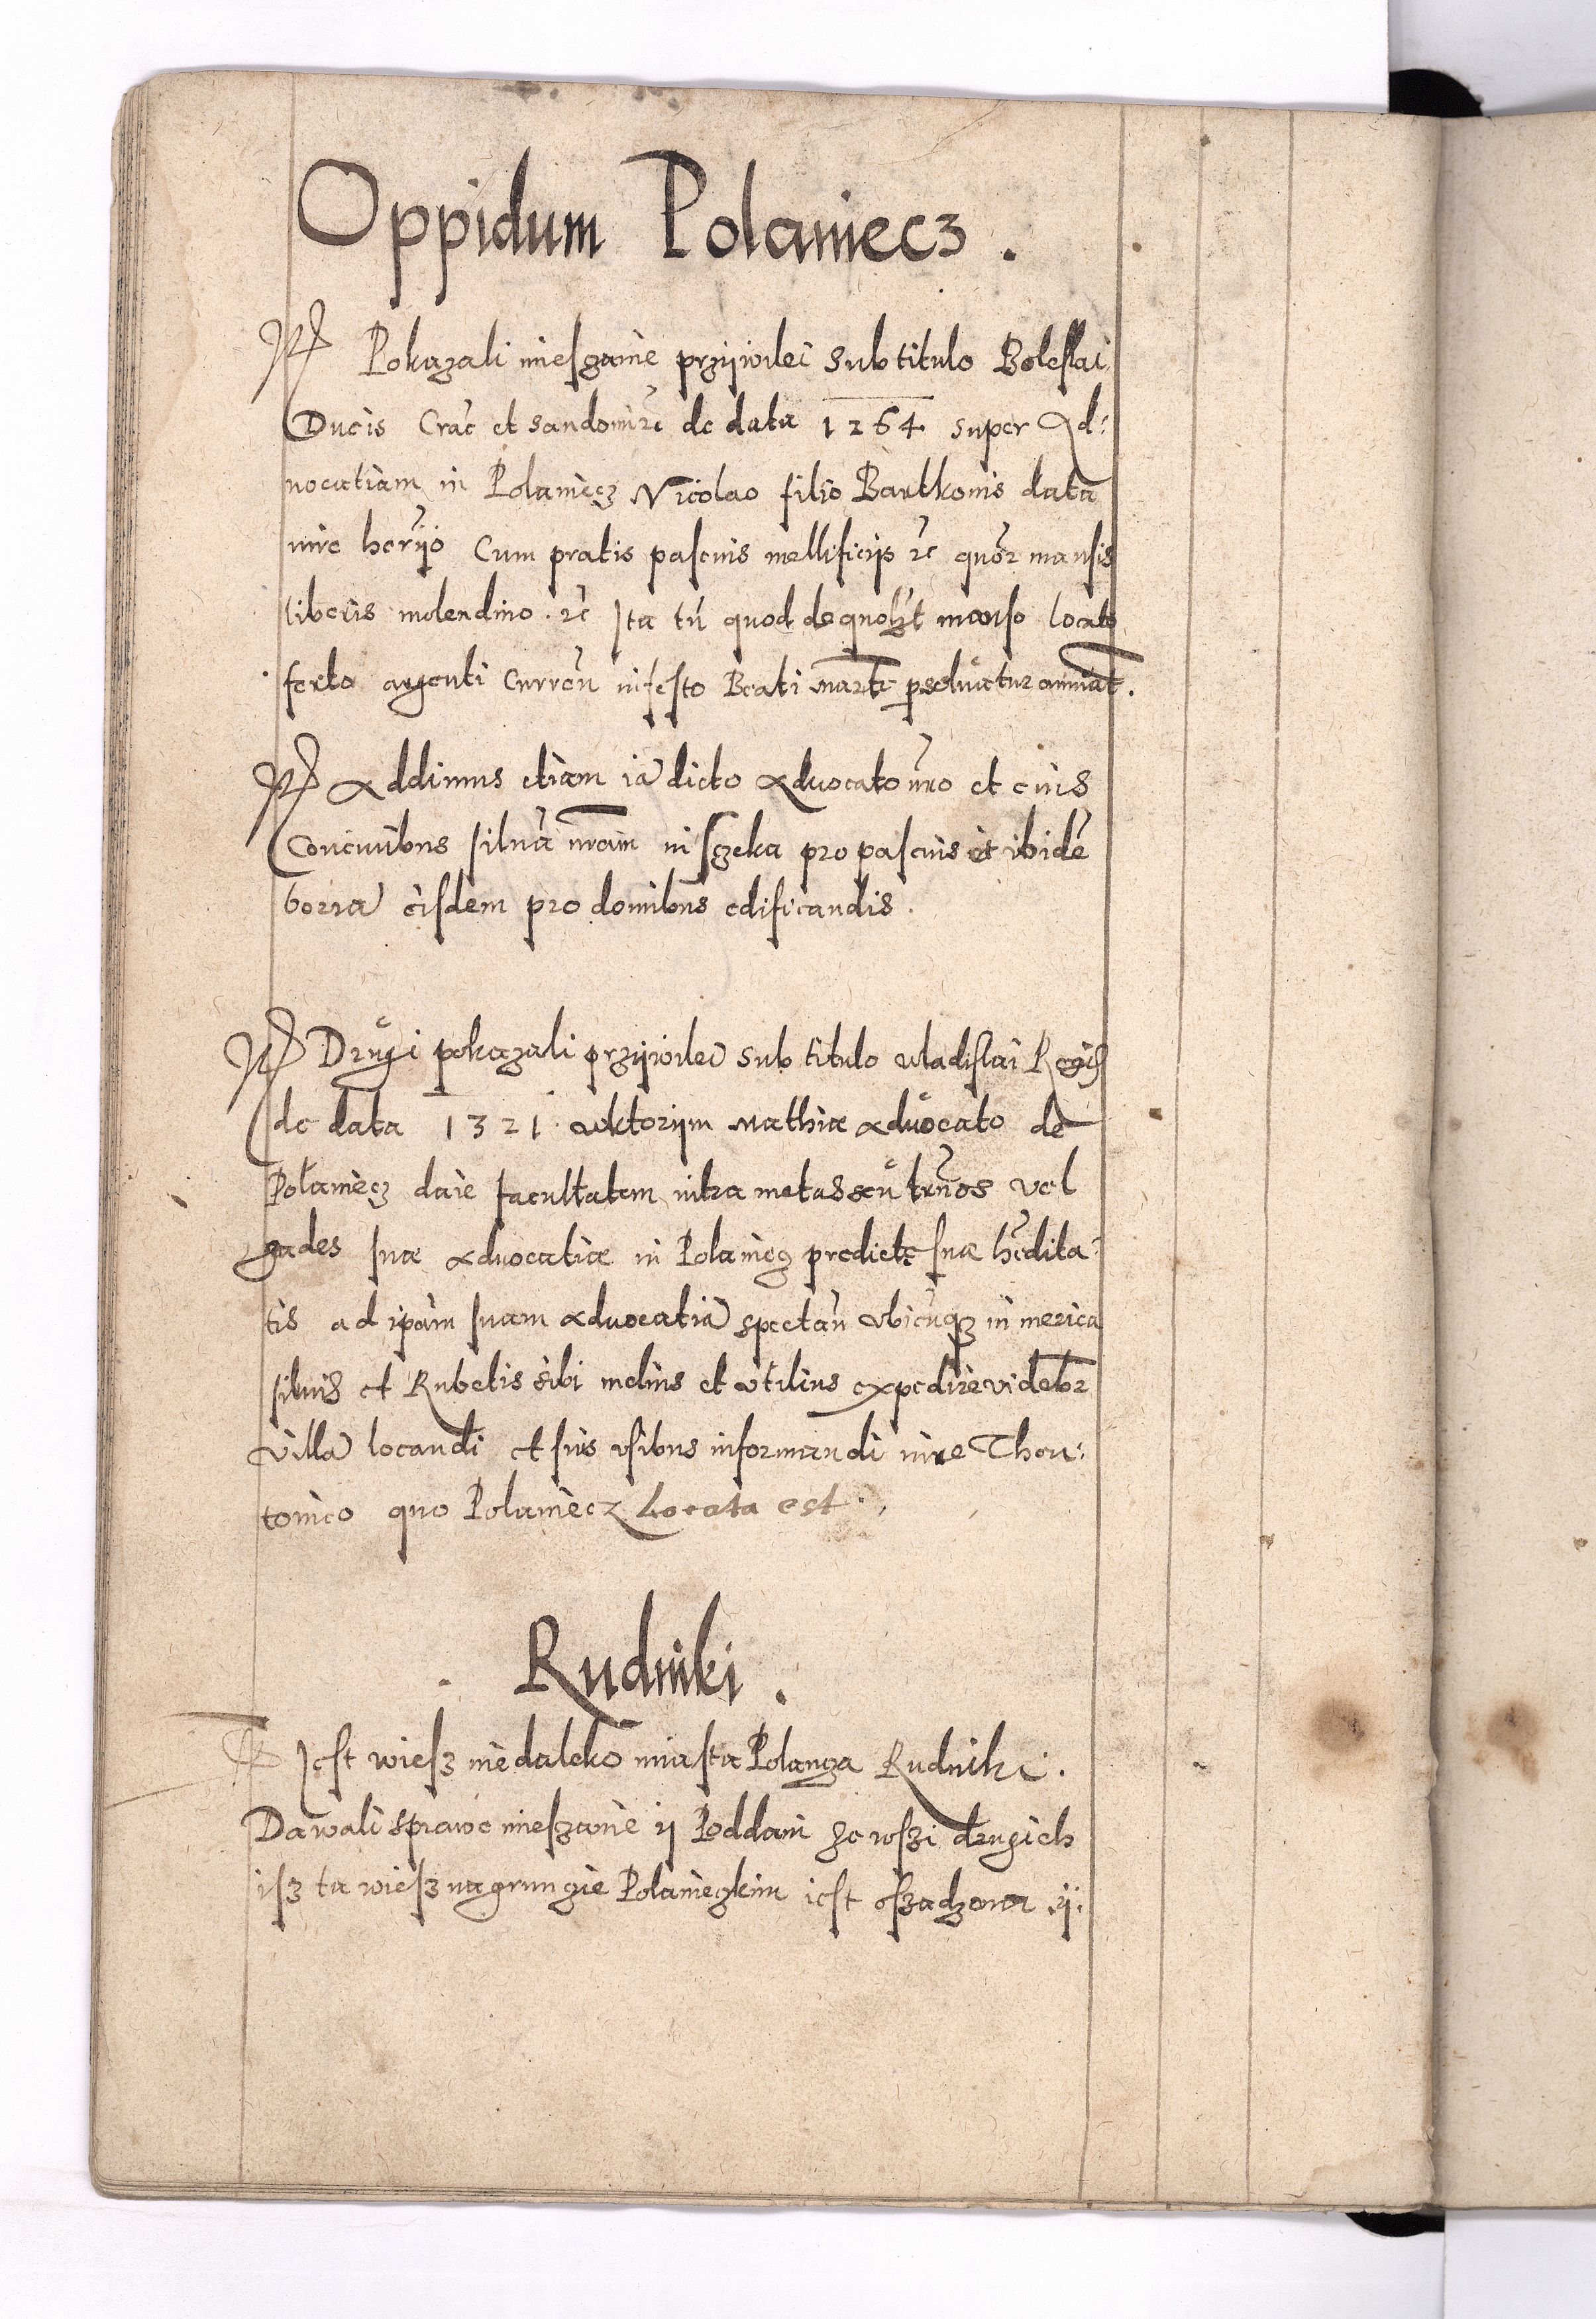 Oppidum Polaniecz.
Pokazali miesczanie przÿwilei sub titulo Boleslai
Ducis Crac et Sandomirze de data 1264 super Ad:
vocatiam in Polaniecz Nicolao filio Bartkonis data
iure Cum pratis pascuis mellificijs rc mansis
liberis molendino. rc Ita tn quod de manso locato
ferto argenti Curren in festo Beati Marti psolvatur annuat.
Addimus etiam ia dicto Advocato nro et eius
Concivibus silva nram in Szeka pro pascuis et ibide
borra eisdem pro domibus edificandis.
Drugi pokazali przÿwilei sub titulo Vladislai Regis
de data 1321 Mathiæ Advocato de
Polaniecz daie facultatem intra metas seu trnos vel
gades suæ Advocatiæ in Polaniecz predicte suæ hredita:
tis ad ipam suam Advocatia spectan ubicunqz in merica
silvis et Rubetis sibi melius et utilius expedire videbr
villa locandi et suis usibus informandi iure Theu:
tonico quo Polaniecz Locata est.
Rudniki.
Jest wiesz niedaleko miasta Polanza Rudniki.
Dawali sprawe miesczanie ÿ Poddani ze wszi drugich
isz ta wiesz na gruncie Polanieczkim iest oszadzona ÿ: